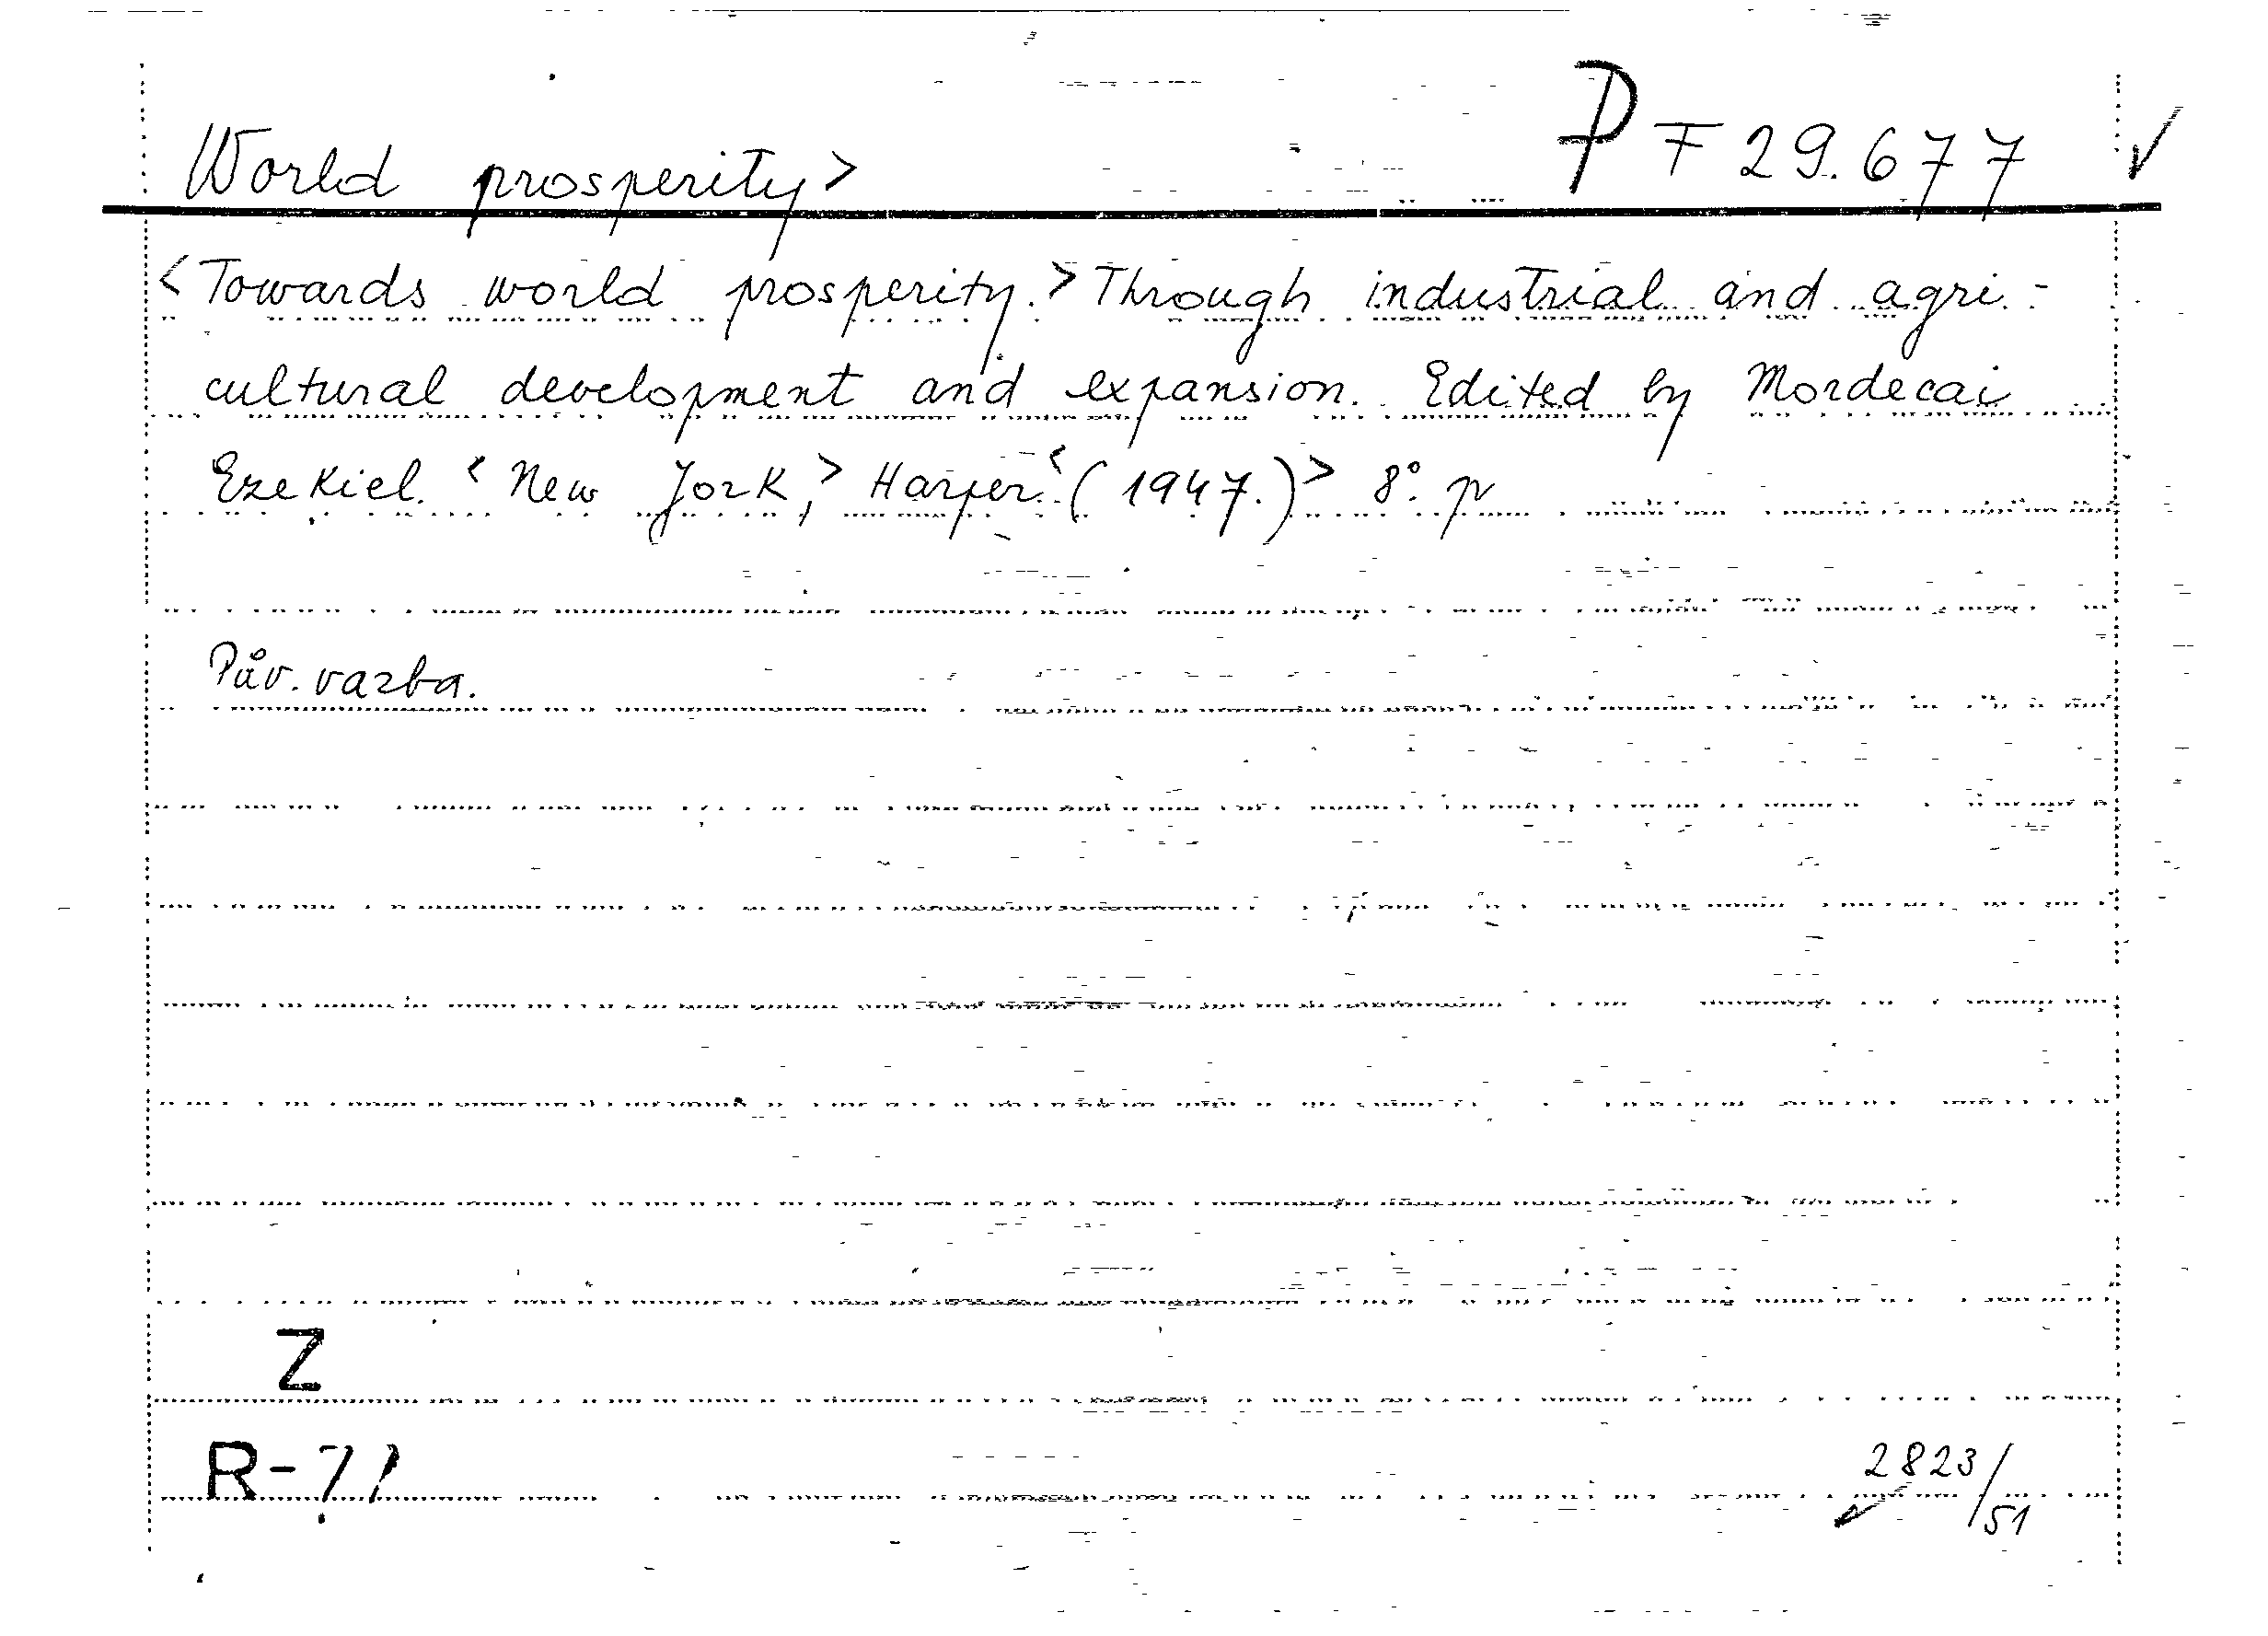 World prosperity> P F 29.677 ✓
<Towards world prosperity.> Through industrial and agri-
cultural development and expansion. Edited by Mordecai
Ezekiel. <New York,> Harper <(1947.)> 8°. p
Pův. vazba.
Z
R-71
2823/51